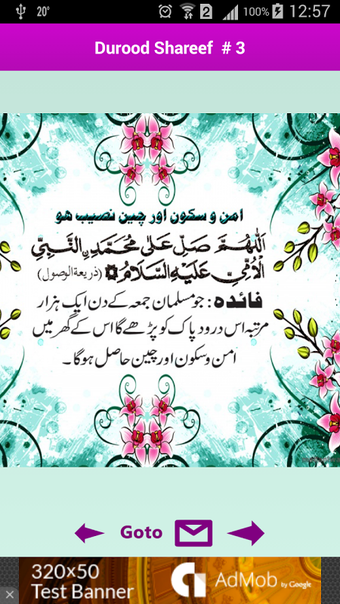 20°
2
100%
12:57
Durood Shareef # 3
امن و سکون اور چین نصیب ھو
اَللّٰهُمَّ صَلِّ عَلٰى مُحَمَّدِ نِالنَّبِيِّ
الْاُمِّيِّ عَلَيْهِ السَّلَامُ (ذريعة الوصول)
فائدہ : جو مسلمان جمعہ کے دن ایک ہزار
مرتبہ اس درود پاک کو پڑھے گا اس کے گھر میں
امن و سکون اور چین حاصل ہوگا۔
Goto
320x50
Test Banner
AdMob by Google